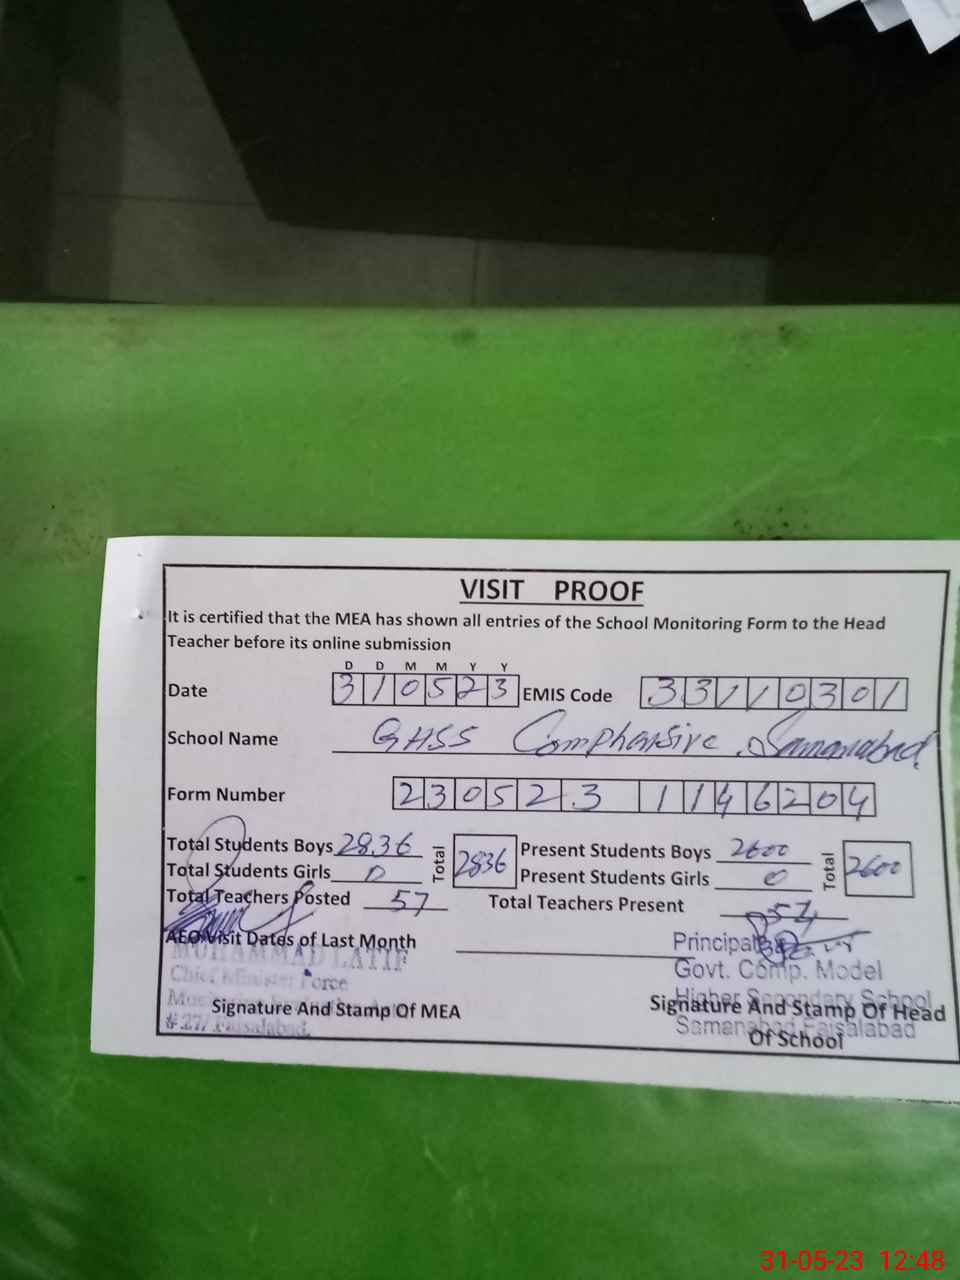 VISIT PROOF
It is certified that the MEA has shown all entries of the School Monitoring Form to the Head
Teacher before its online submission
D D M M Y Y
Date 310523 EMIS Code 33110301
School Name GHSS Comphensive Samanabad
Form Number 230523 1146204
Total Students Boys 2836 Total 2836 Present Students Boys 2600 Total 2600
Total Students Girls 0 Present Students Girls 0
Total Teachers Posted 57 Total Teachers Present 54
AEO Visit Dates of Last Month
MUHAMMAD LATIF
Chief Minister Force
# 27/ Faisalabad.
Signature And Stamp Of MEA
Principal
Govt. Comp. Model
Higher Secondary School
Samanabad Faisalabad
Signature And Stamp Of Head
Of School
31-05-23 12:48